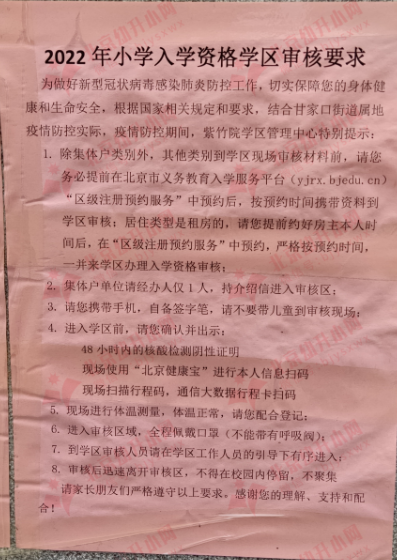 2022 年小学入学资格学区审核要求
为做好新型冠状病毒感染肺炎防控工作，切实保障您的身体健
康和生命安全，根据国家相关规定和要求，结合甘家口街道属地
疫情防控实际，疫情防控期间，紫竹院学区管理中心特别提示：
1. 除集体户类别外，其他类别到学区现场审核材料前，请您
务必提前在北京市义务教育入学服务平台（yjrx.bjedu.cn）
“区级注册预约服务”中预约后，按预约时间携带资料到
学区审核；居住类型是租房的，请您提前约好房主本人时
间后，在“区级注册预约服务”中预约，严格按预约时间，
一并来学区办理入学资格审核；
2. 集体户单位请经办人仅 1 人，持介绍信进入审核区；
3. 请您携带手机，自备签字笔，请不要带儿童到审核现场；
4. 进入学区前，请您确认并出示：
48 小时内的核酸检测阴性证明
现场使用“北京健康宝”进行本人信息扫码
现场扫描行程码，通信大数据行程卡扫码
5. 现场进行体温测量，体温正常，请您配合登记；
6. 进入审核区域，全程佩戴口罩（不能带有呼吸阀）；
7. 到学区审核人员请在学区工作人员的引导下有序进入；
8. 审核后迅速离开审核区，不得在校园内停留，不聚集
请家长朋友们严格遵守以上要求，感谢您的理解、支持和配
合！